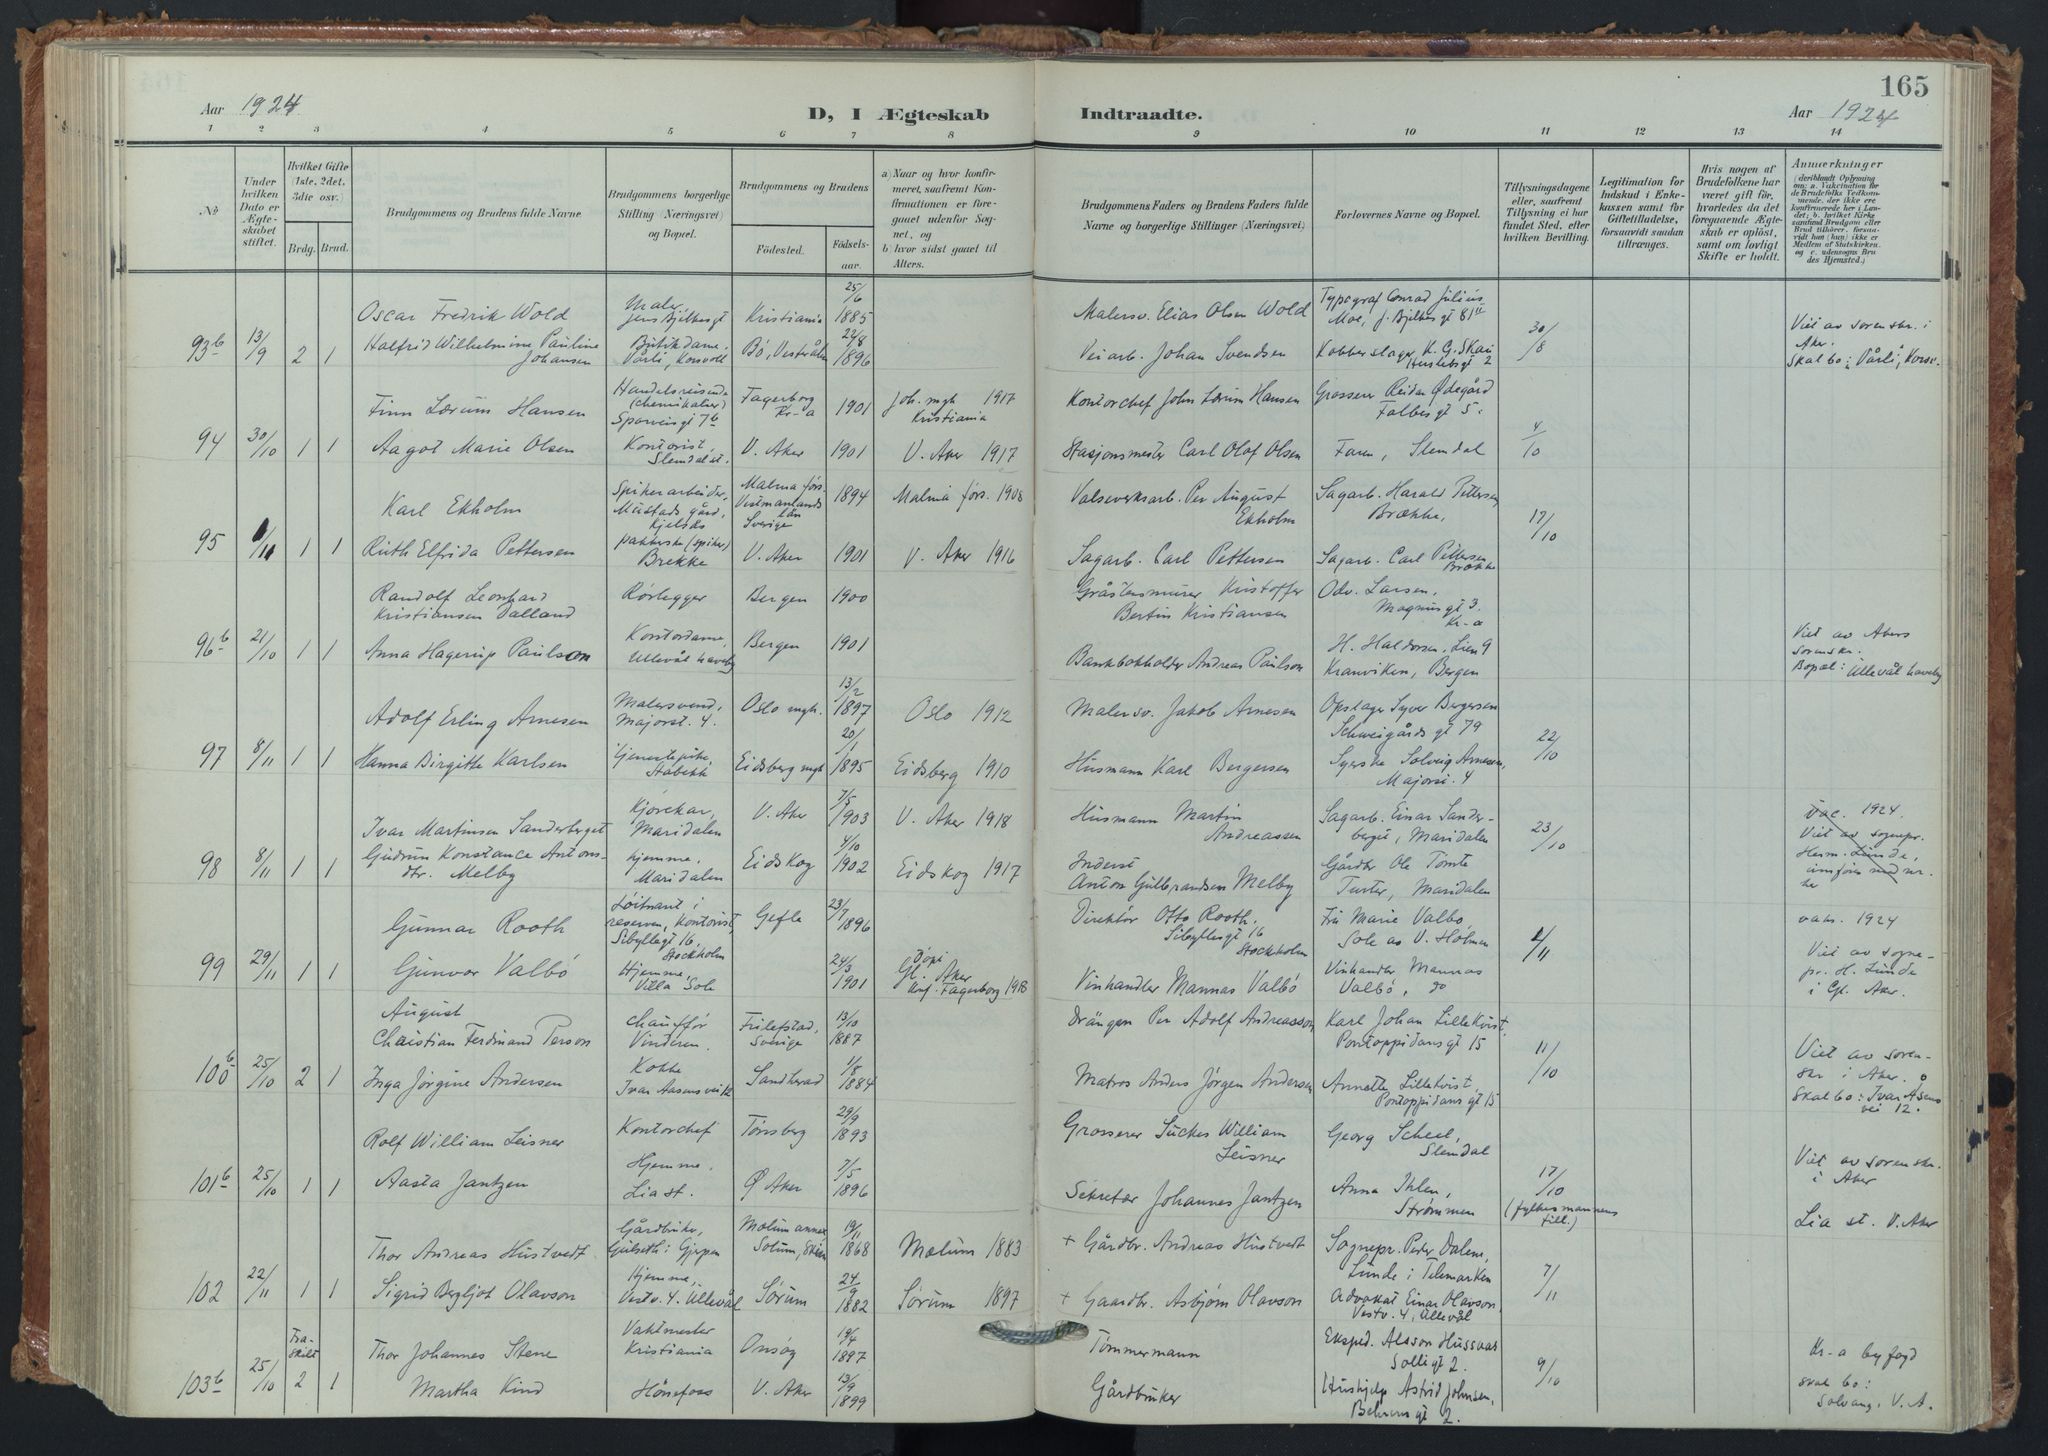 165
Aar 1924
D, I Ægteskab
Indtraadte.
Aar 1924
1 2 3 4 5 6 7 8 9 10 11 12 13 14
No
Under hvilken Dato er Ægteskabet stiftet.
Hvilket Gifte (1ste, 2det, 3die osv.)
Brdg. Brud.
Brudgommens og Brudens fulde Navne
Brudgommens borgerlige Stilling (Næringsvei) og Bopæl.
Brudgommens og Brudens
Födested.
Födsels-aar.
a) Naar og hvor konfirmeret, saafremt Konfirmationen er foregaaet udenfor Sognet, og
b) hvor sidst gaaet til Alters.
Brudgommens Faders og Brudens Faders fulde Navne og borgerlige Stillinger (Næringsvei)
Forlovernes Navne og Bopæl.
Tillysningsdagene eller, saafremt Tillysning ei har fundet Sted, efter hvilken Bevilling.
Legitimation for Indskud i Enkekassen samt for Giftetilladelse, forsaavidt saadan tiltrænges.
Hvis nogen af Brudefolkene har været gift før, hvorledes da det foregaaende Ægteskab er oplöst, samt om lovligt Skifte er holdt.
Anmærkninger
Oscar Fredrik Wold Maler, Jens Bjelkesgt Kristiania 25/6 1885 Malersv. Elias Olsen Wold Typograf Conrad Julius Moe, J. Bjelkesgt 81
93b 13/9 2 1 Halfrid Wilhelmine Pauline Johansen Butikdame, Vårli, Korsvoll Bø, Vesterålen 22/8 1896 Veiarb. Johan Svendsen Kobberslager K. G. Skau Herslebsgt 2 30/8 Viet av sorenskr. i Aker. Skal bo: Vårli, Korsv.
Finn Lærum Hansen Handelsreisende (chemikalier) Sporveisgt 7b Fagerborg Kr-a 1901 Joh. mgh 1917 Kristiania Kontorchef John Lærum Hansen Grosserer Reidar Ødegård Falbesgt 5.
94 30/10 1 1 Aagot Marie Olsen Kontorist, Slemdal st. V. Aker 1901 V. Aker 1917 Stasjonsmester Carl Olaf Olsen Faren, Slemdal 4/10
Karl Ekholm Spikerarbeider, Mustads gård, Kjelsås Malma förs. Vestmanlands län Sverige 1894 Malma förs. 1908 Valseverksarb. Per August Ekholm Sagarb. Harald Pettersen Brække,
95 1/11 1 1 Ruth Elfrida Pettersen pakkerske (spiker) Brekke V. Aker 1901 V. Aker 1916 Sagarb. Carl Pettersen Sagarb. Carl Pettersen Brække 17/10
Randolf Leonhard Kristiansen Dalland Rørlegger Bergen 1900 Gråstensmurer Kristoffer Bertin Kristiansen Odv. Larsen, Magnusgt 3. Kr-a
96b 21/10 1 1 Anna Hagerup Paulson Kontordame, Ullevål haveby Bergen 1901 Bankbokholder Andreas Paulson H. Haldorsen, Lien 9 Kranviken, Bergen Viet av Akers sorenskr. Bopæl: Ullevål haveby
Adolf Erling Arnesen Malersvend, Majorst. 4. Oslo mgh. 13/2 1897 Oslo 1912 Malersv. Jakob Arnesen Opslager Syver Bergersen Schweigårds gt 79
97 8/11 1 1 Hanna Birgitte Karlsen Tjenestepike, Stabekk Eidsberg mgh 20/1 1895 Eidsberg 1910 Husmann Karl Bergersen Syerske Solveig Arnesen, Majorst. 4 22/10
Ivar Martinsen Sanderberget Kjørekar, Maridalen V. Aker 7/5 1903 V. Aker 1918 Husmann Martin Andreassen Sagarb. Einar Sanderberget, Maridalen
98 8/11 1 1 Gudrun Konstance Antonsdtr. Melby hjemme, Maridalen Eidskog 4/10 1902 Eidskog 1917 Inderst Anton Gulbrandsen Melby Gårdbr Ole Tomte Turter, Maridalen 23/10 vac. 1924. Viet av sognepr. Herm. Lunde,
Gunnar Rooth Løitnant i reserven, Kontorist, Sibyllegt 16, Stockholm Gefle 23/7 1896 Direktör Otto Rooth. Sibyllegt 16 Stockholm Fru Marie Valbø Sole av V. Holmen
99 29/11 1 1 Gunvor Valbö Hjemme, Villa Sole 24/3 1901 Döpt Gl. Aker Konf. Fagerborg 1918 Vinhandler Mannas Valbö Vinhandler Mannas Valbö, do 4/11 vaks. 1924 Viet av sognepr. H. Lunde i Gl. Aker.
August Christian Ferdinand Person chauffør Vinderen. Filipstad, Sverige 13/10 1887 Drängen Per Adolf Andreasson Karl Johan Lillekvist, Pontoppidansgt 15
100b 25/10 2 1 Inga Jørgine Andersen Kokke Ivar Aasens vei 12 Sandherad 1/8 1884 Matros Anders Jørgen Andersen Annette Lillekvist, Pontoppidans gt 15 11/10 Viet av sorenskr i Aker. Skal bo: Ivar Åsens vei 12.
Rolf William Leisner Kontorchef Tønsberg 29/9 1893 Grosserer Suckes William Leisner Georg Scheel, Slemdal
101b 25/10 1 1 Aasta Jantzen Hjemme, Lia st. Ø Aker 7/5 1896 Sekretær Johannes Jantzen Anna Ihlen, Strømmen 17/10 (fylkesmannens till.) Viet av sorenskr. i Aker Lia st. V. Aker
Thor Andreas Hustvedt Gårdbruker, Gulseth i Gjerpen Mælum annex Solum, Skien 19/11 1868 Mælum 1883 + Gårdbr. Andreas Hustvedt Sognepr. Peder Dalen, Lunde i Telemarken
102 22/11 1 1 Sigrid Bergljot Olavson Hjemme, Vestv. 4. Ullevål Sørum 24/9 1882 Sørum 1897 + Gaardbr. Asbjørn Olavson Advokat Einar Olavson, Vestv. 4, Ullevål 7/11
Fraskilt Thor Johannes Stene Vaktmester Kristiania Onsøy 19/4 1897 Tømmermann Eksped. Alsson Hussvas Solligt 2.
103b 25/10 2 1 Martha Kind Hønefoss V. Aker 13/9 1899 Gårdbruker Hushjelp Astrid Johnsen, Behrensgt 2. 9/10 Kr-a byfogd skal bo: Solvang, V. A.